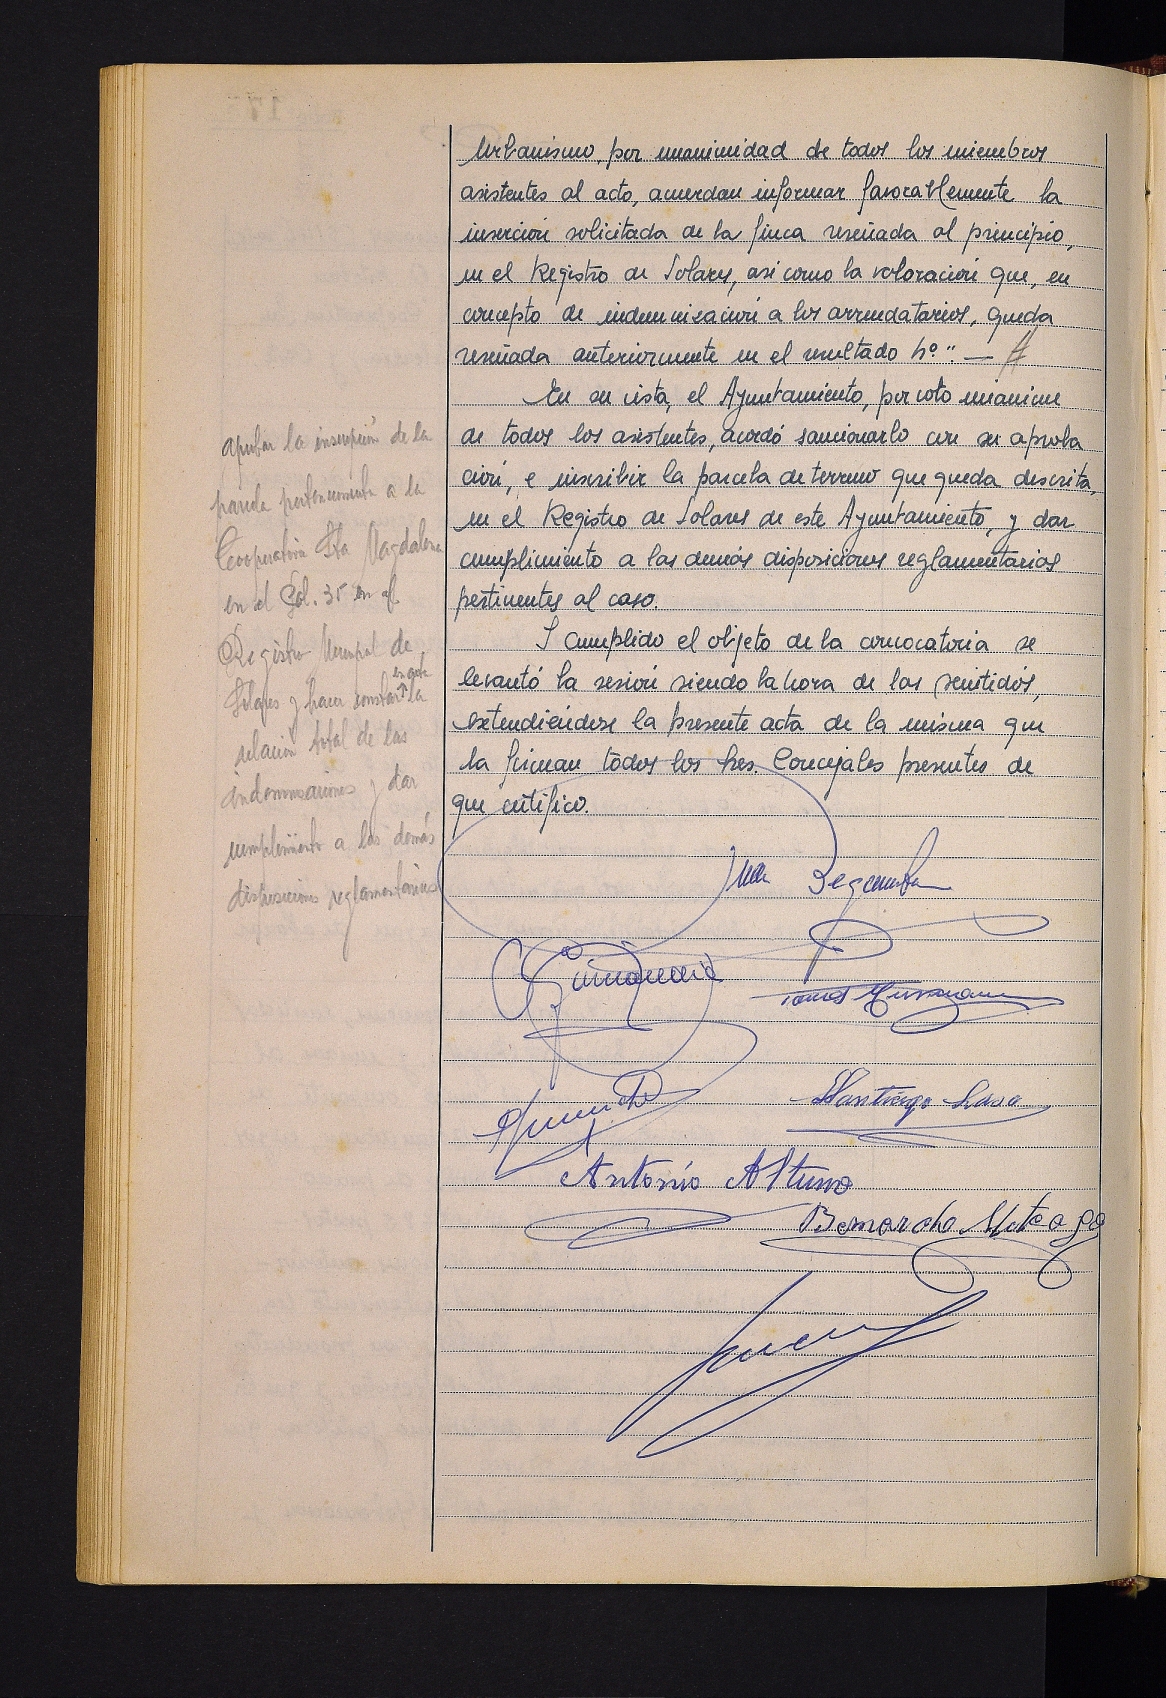 Urbanismo, por unanimidad de todos los miembros
asistentes al acto, acuerdan informar favorablemente la
inserción solicitada de la finca reseñada al principio,
en el Registro de Solares, así como la valoración que, en
concepto de indemnización a los arrendatarios, queda
reseñada anteriormente en el resultado
En su vista, el Ayuntamiento, por voto unánime
de todos los asistentes, acordó sancionarlo con su aproba
ción, e inscribir la parcela de terreno que queda descrita,
en el Registro de Solares de este Ayuntamiento, y dar
cumplimiento a las demás disposiciones reglamentarias
pertinentes al caso.
Y cumplido el objeto de la convocatoria se
levantó la sesión siendo la hora de las
extendiéndose la presente acta de la misma que
la firman todos los Sres. Concejales presentes de
que certifico.
aprobar la inscripción de la
parcela perteneciente a la
Cooperativa Sta Magdalena
en el Pol. 35 en el
Registro Municipal de
Solares y hacer constar la
relación total de las
indemnizaciones y dar
cumplimiento a las demás
disposiciones reglamentarias
Santiago Lasa
Antonio Altuna
Bernardo